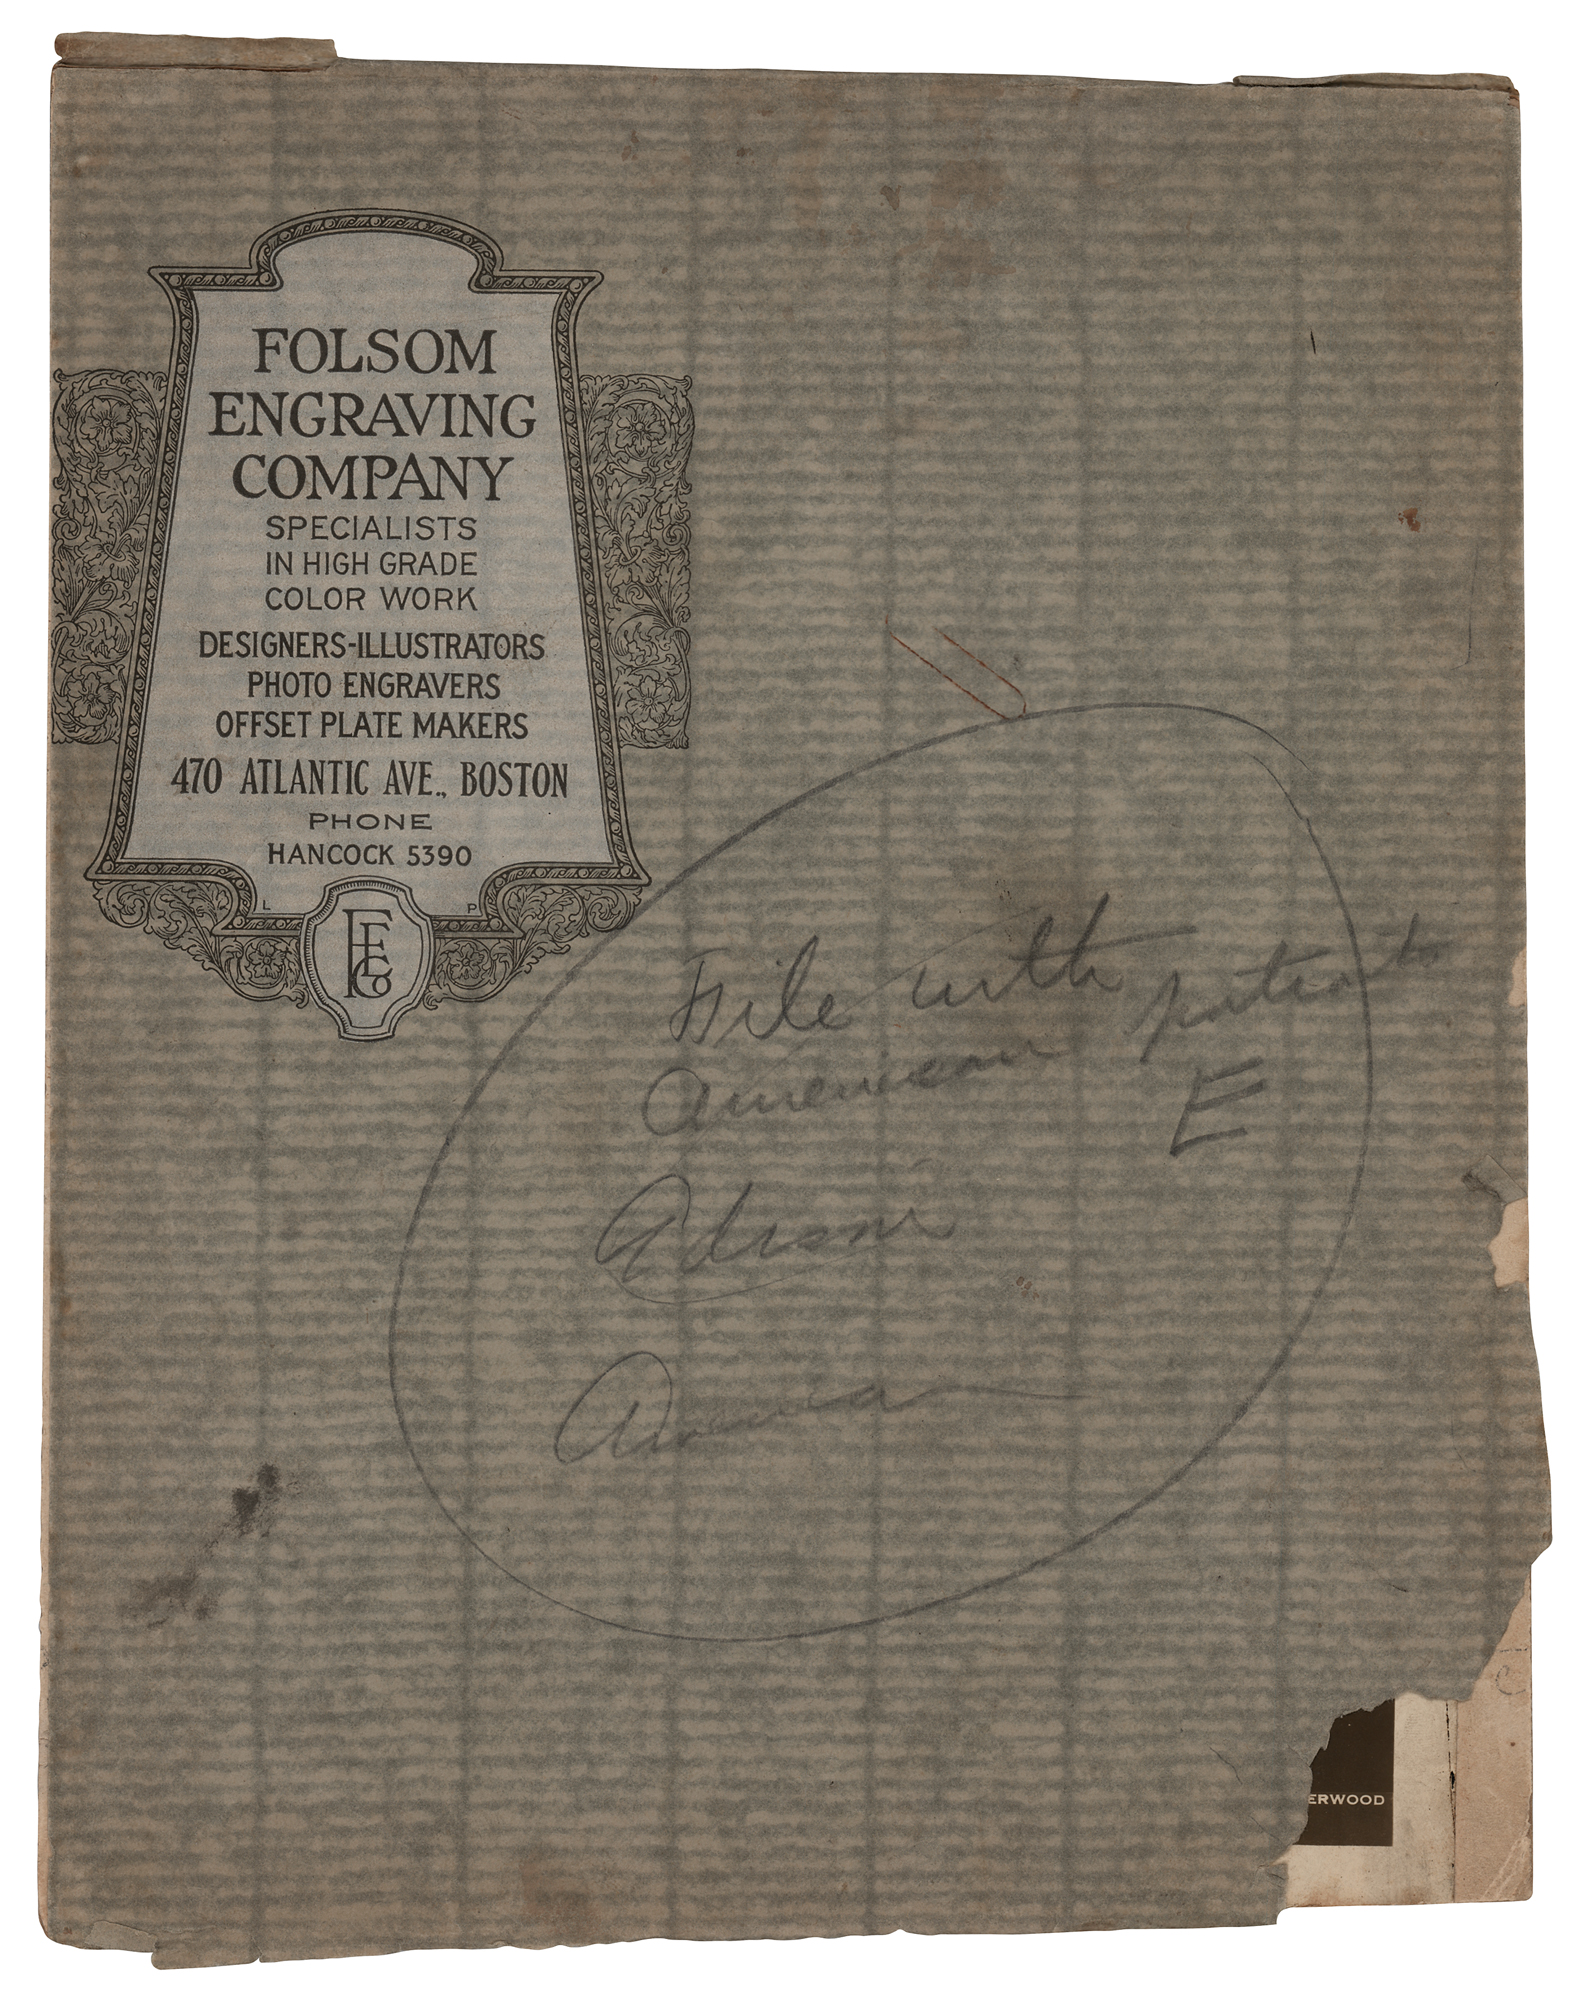 FOLSOM
ENGRAVING
COMPANY
SPECIALISTS
IN HIGH GRADE
COLOR WORK
DESIGNERS-ILLUSTRATORS
PHOTO ENGRAVERS
OFFSET PLATE MAKERS
470 ATLANTIC AVE., BOSTON
PHONE
HANCOCK 5390
L P
F E Co
File with
American
E
Edison
America
ERWOOD